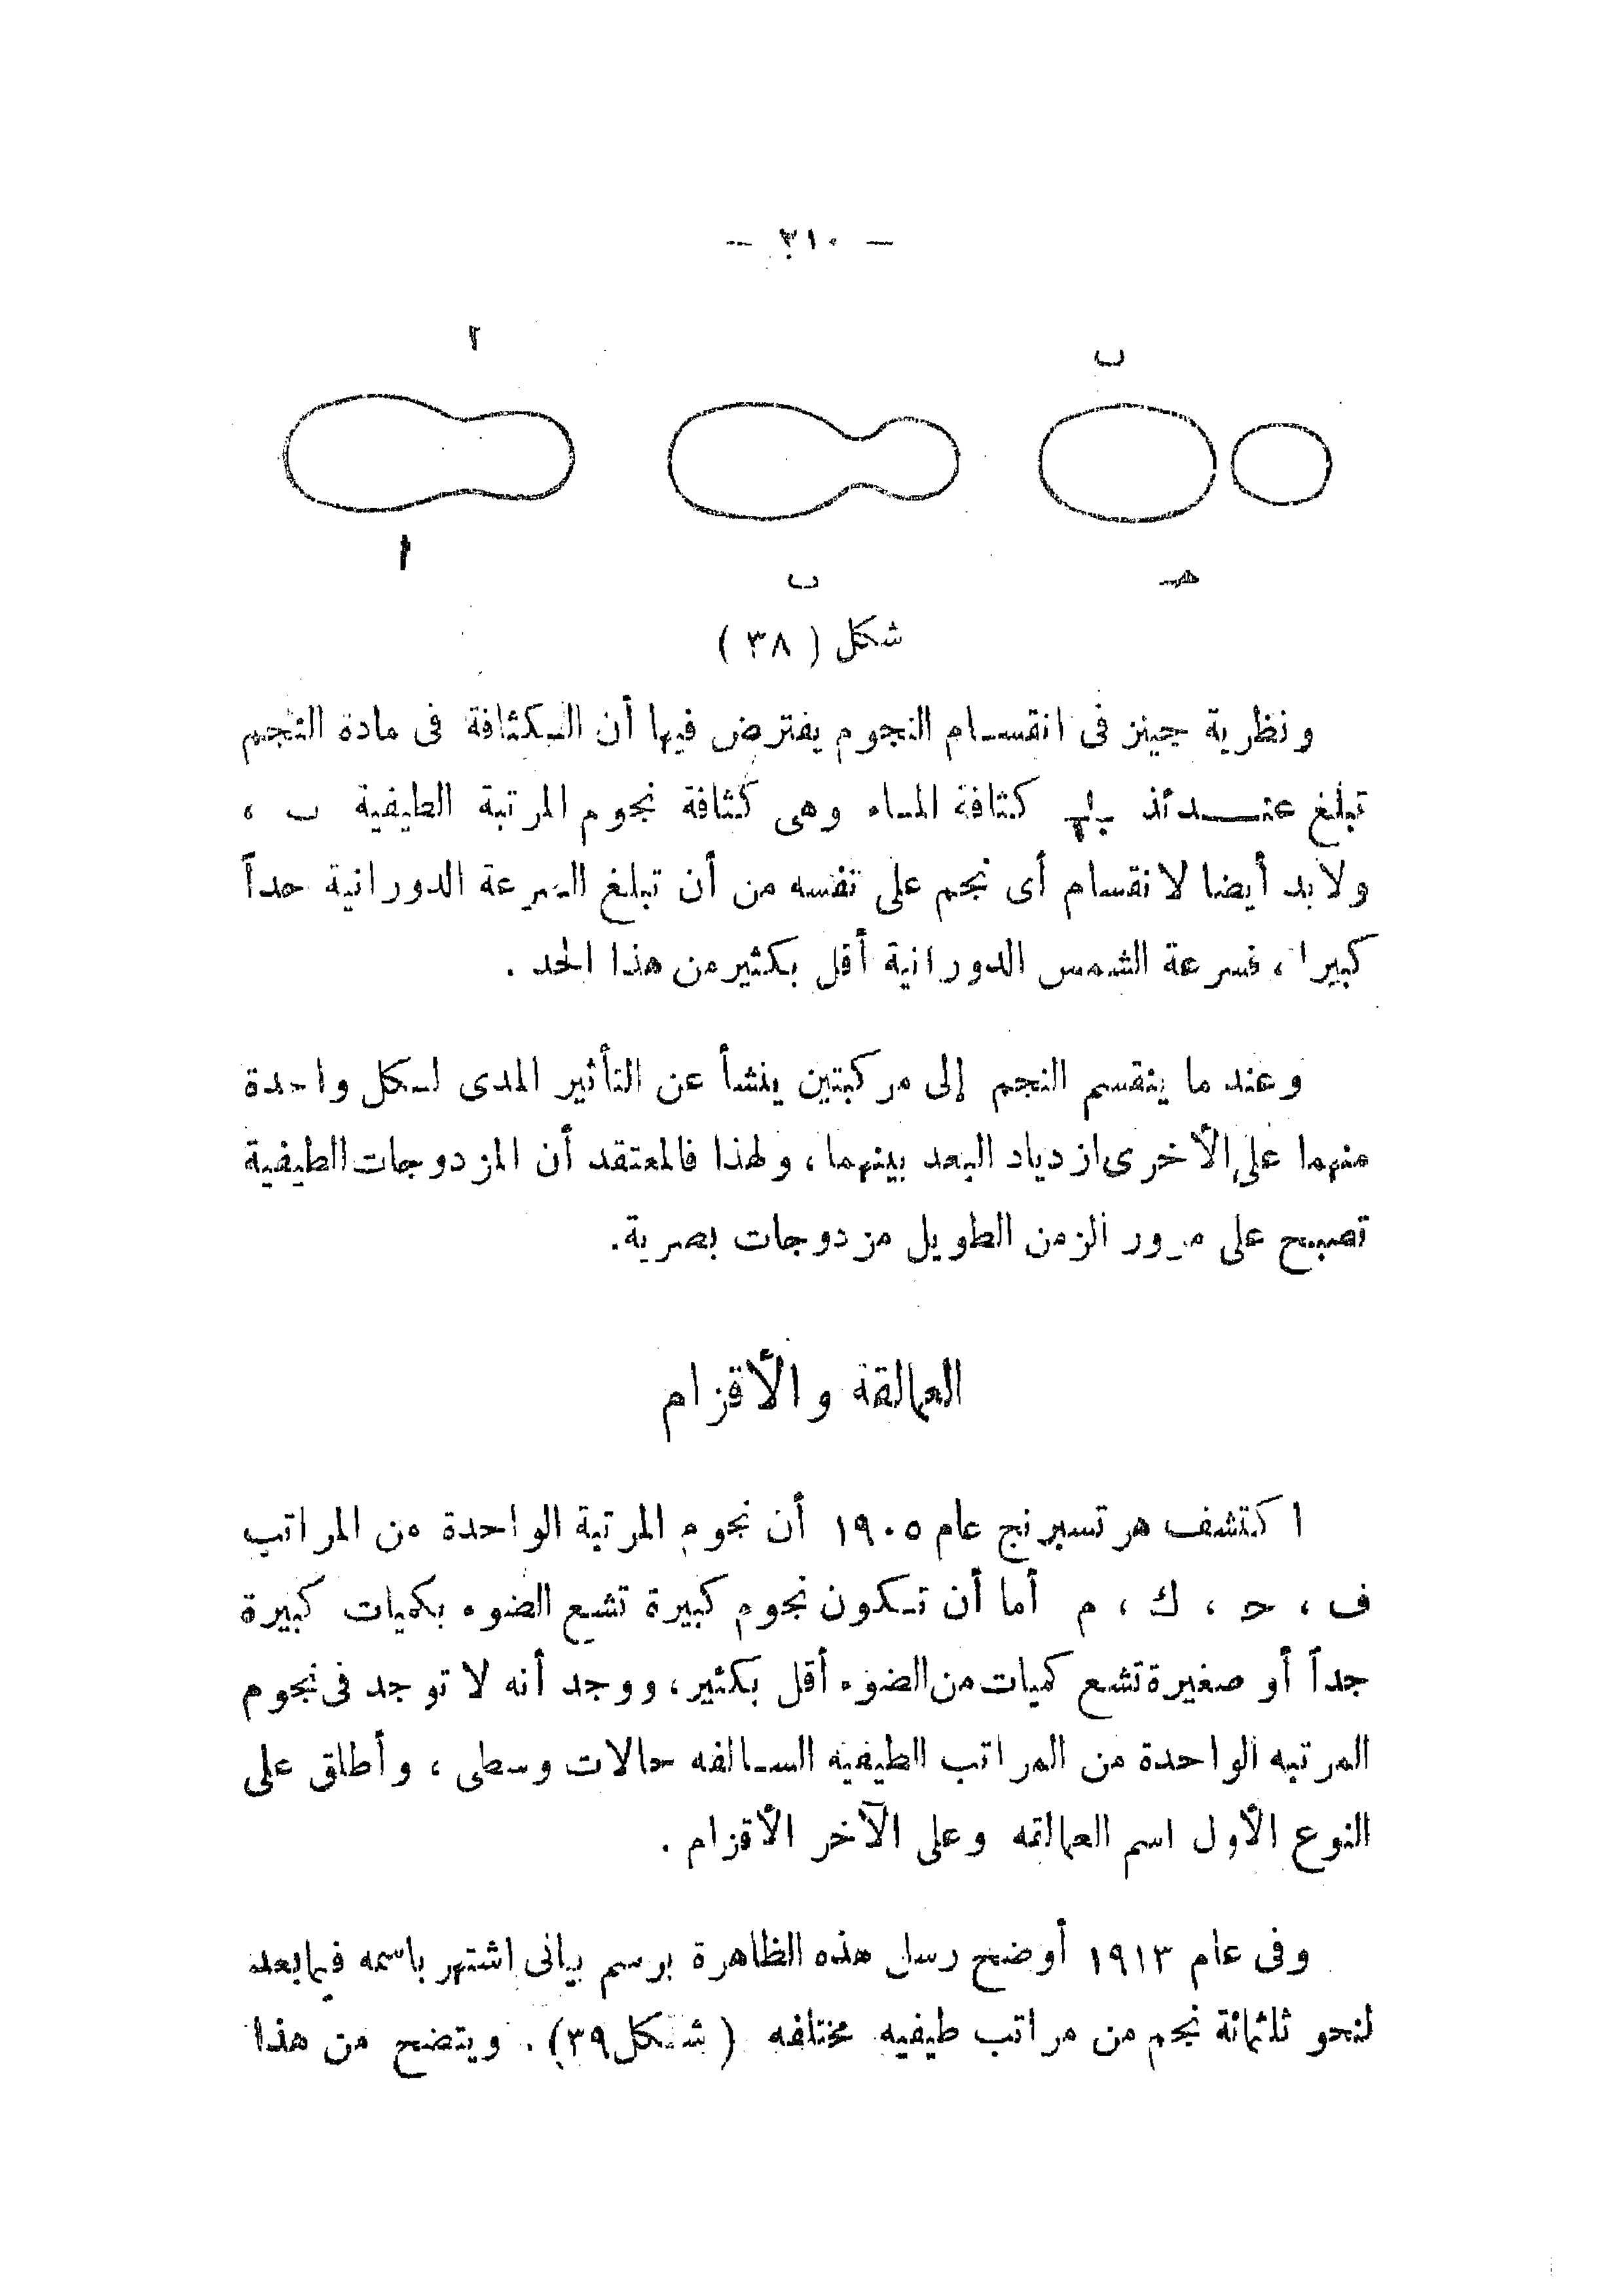 — ٣١٠ —
أ
ب
ا
ب
هـ
شكل ( ٣٨ )
ونظرية جينز فى انقسام النجوم يفترض فيها أن الكثافة فى مادة النجم
تبلغ عندئذ كثافة الماء وهى كثافة نجوم المرتبة الطيفية ب ،
ولا بد أيضا لانقسام أى نجم على نفسه من أن تبلغ السرعة الدورانية حداً
كبيرا ، فسرعة الشمس الدورانية أقل بكثير من هذا الحد .
وعند ما ينقسم النجم إلى مركبتين ينشأ عن التأثير المدى لكل واحدة
منهما على الأخرى ازدياد البعد بينهما ، ولهذا فالمعتقد أن المزدوجات الطيفية
تصبح على مرور الزمن الطويل مزدوجات بصرية.
العمالقة والأقزام
اكتشف هرتسبرنج عام ١٩٠٥ أن نجوم المرتبة الواحدة من المراتب
ف ، ح ، ك ، م أما أن تكون نجوم كبيرة تشع الضوء بكميات كبيرة
جداً أو صغيرة تشع كميات من الضوء أقل بكثير ، ووجد أنه لا توجد فى نجوم
المرتبه الواحدة من المراتب الطيفيه السالفه حالات وسطى ، وأطلق على
النوع الأول اسم العمالقه وعلى الآخر الأقزام .
وفى عام ١٩١٣ أوضح رسل هذه الظاهرة برسم بيانى اشتهر باسمه فيما بعد
لنحو ثلثمائة نجم من مراتب طيفيه مختلفه ( شكل ٣٩) . ويتضح من هذا